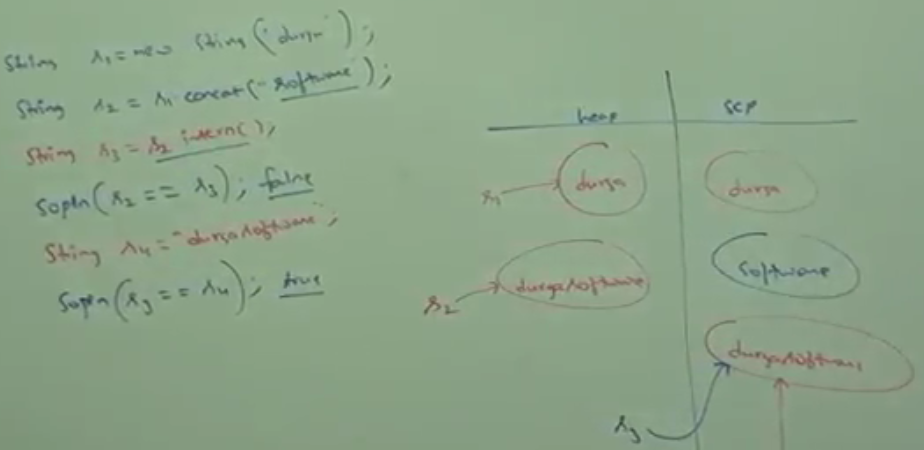 String s1 = new String("durga");
String s2 = s1.concat("software");
String s3 = s2.intern();
sopln(s2 == s3); false
String s4 = "durgasoftware";
sopln(s3 == s4); true
heap
scp
s1
durga
durga
s2
durgasoftware
software
durgasoftware
s3